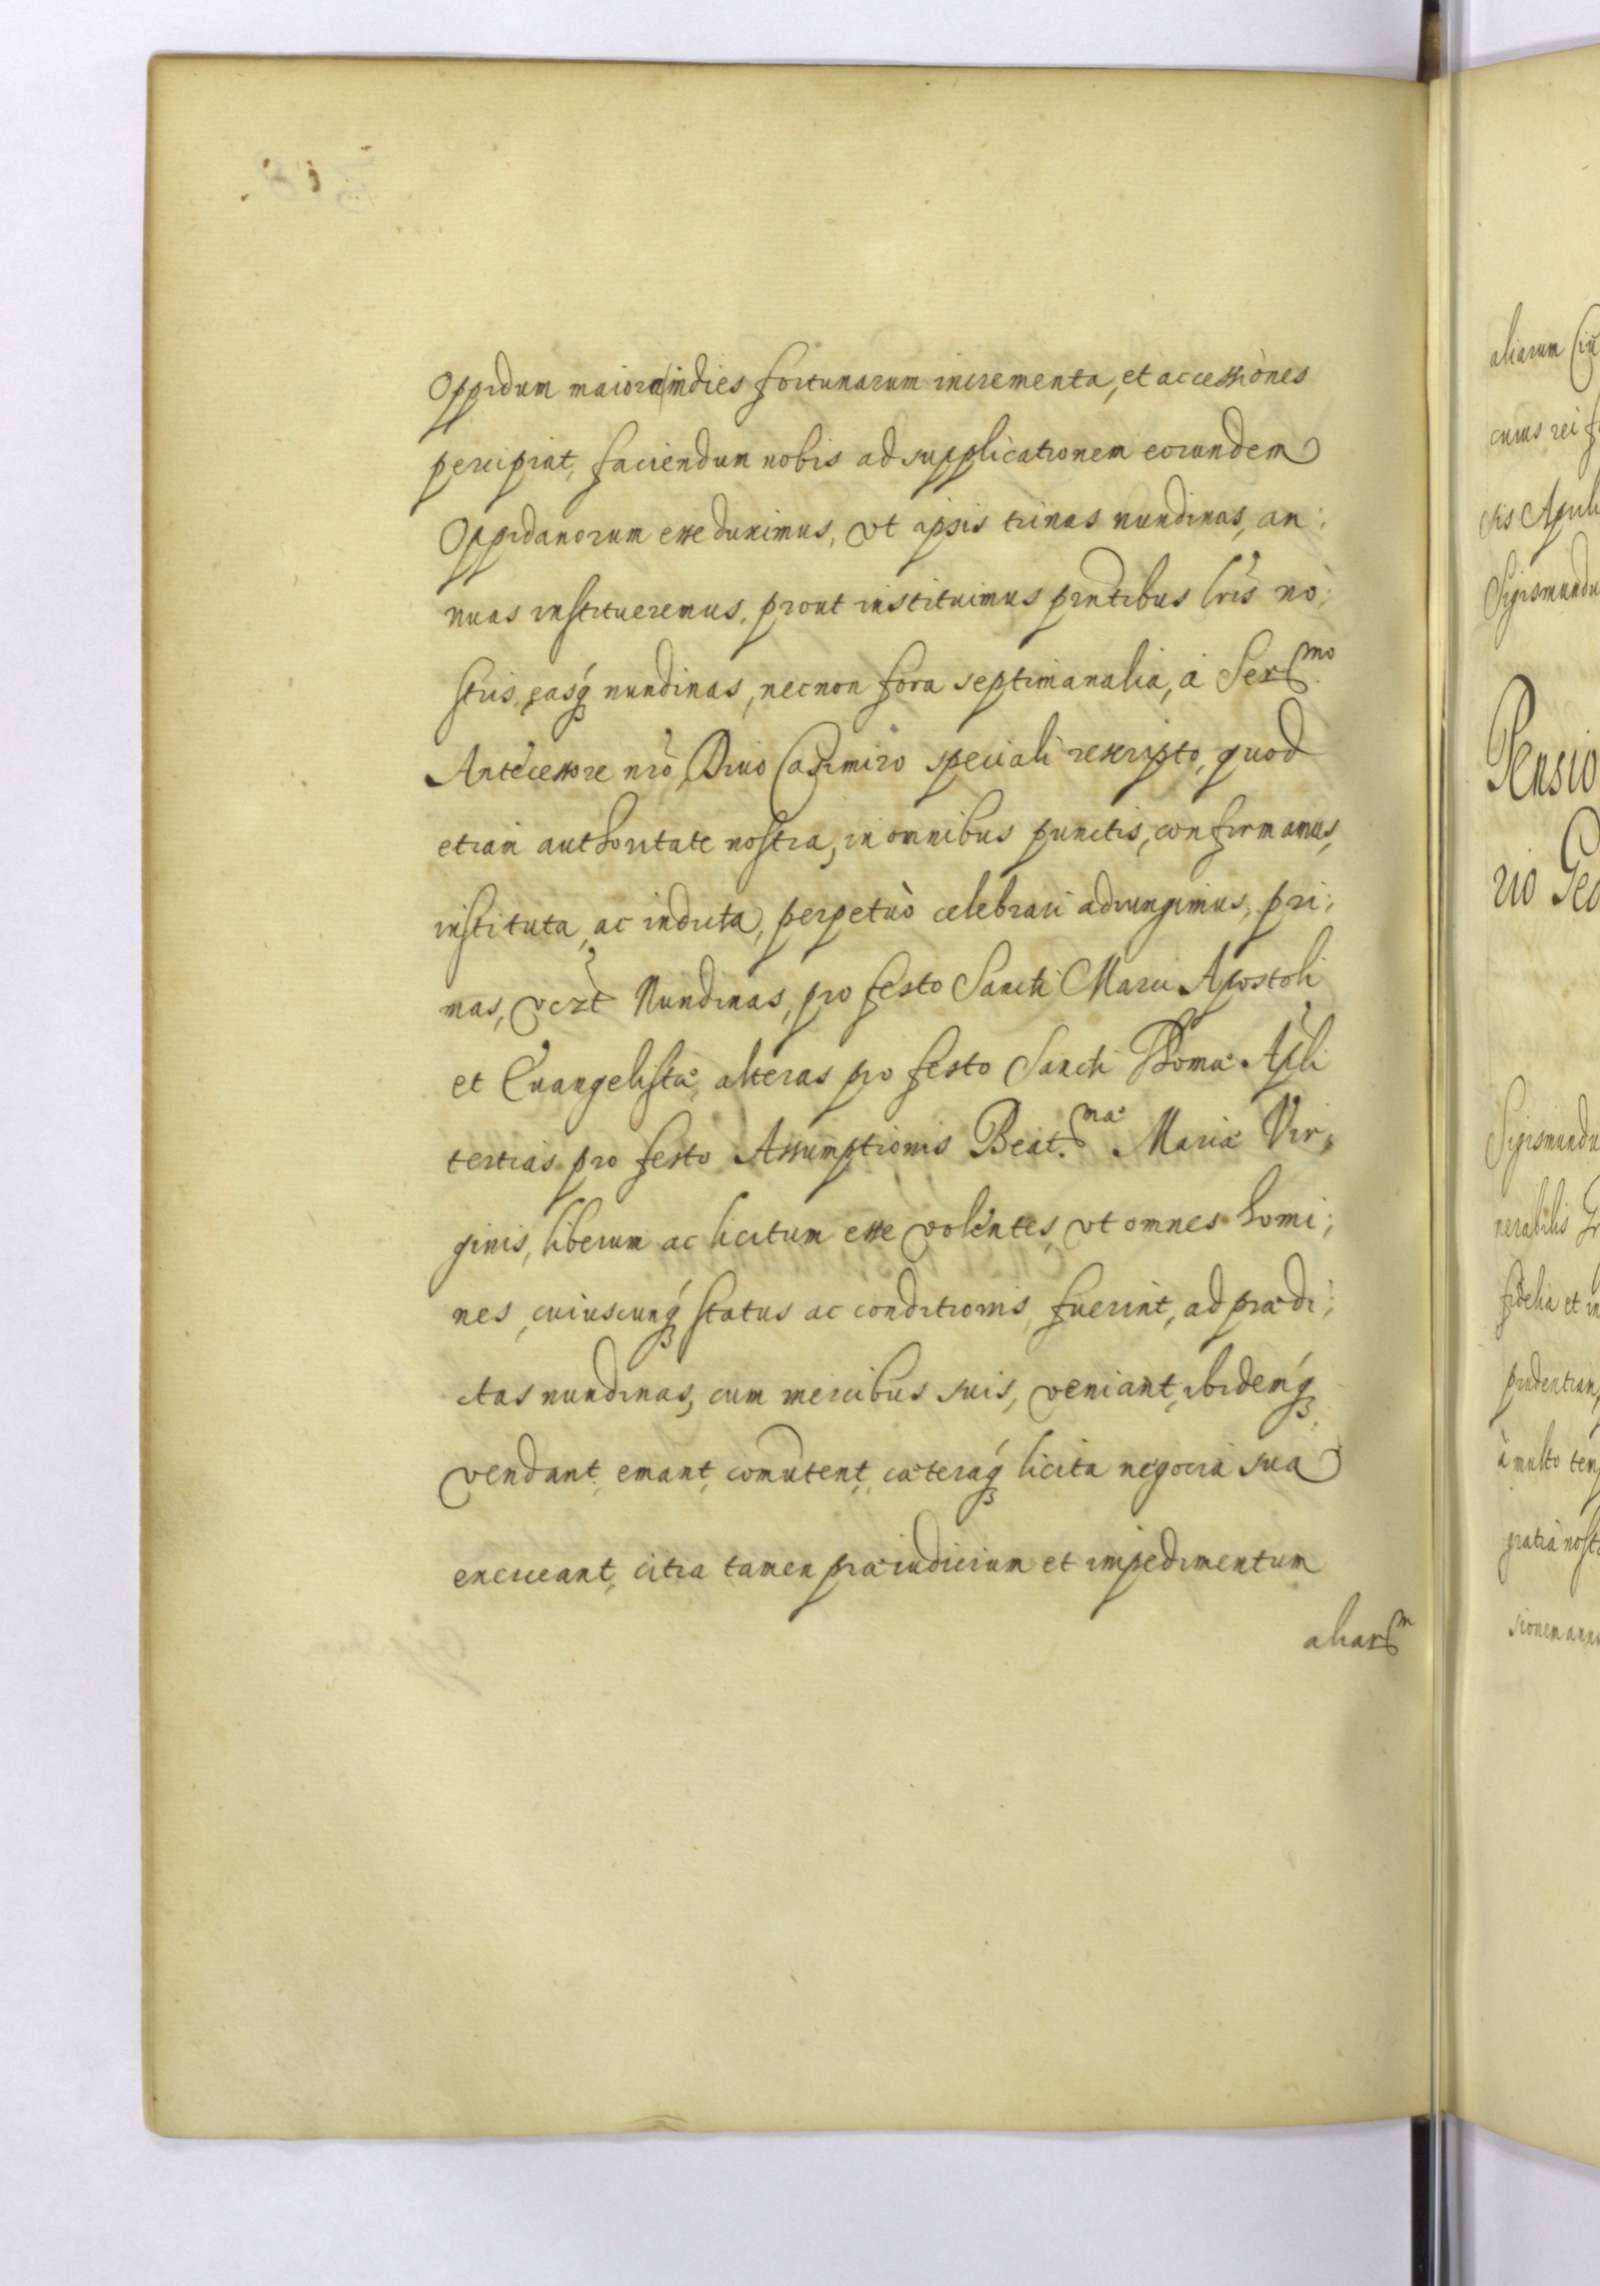 Oppidum maiora indies fortunarum incrementa, et accessiones
percipiat, faciendum nobis ad supplicationem eorundem
Oppidanorum esse duximus, vt ipsis trinas nundinas, an:
nuas institueremus, prout instituimus pntibus lris no:
stris, easq́ nundinas, necnon fora septimanalia, à Sermo
Antecessore nro, Diuo Casimiro speciali rescripto, quod
etiam authoritate nostra, in omnibus punctis, confirmamus,
instituta, ac indicta, perpetuò celebrari adiungimus, pri:
mas, vezt Nundinas, pro festo Sancti Marci Apostoli
et Euangelistæ, alteras pro festo Sancti Thomæ Apli
tertias pro festo Assumptionis Beat.mæ Mariæ Vir:
ginis, liberum ac licitum esse volentes, vt omnes homi:
nes, cuiuscunq́ status ac conditionis, fuerint, ad prædi:
ctas nundinas, cum mercibus suis, veniant, ibidemq́
vendant, emant, comutent, cæteraq́ licita negocia sua
exerceant, citra tamen præiudicium et impedimentum
aliarm
aliarum
cuius rei
Sigismundu
Pensio
rio
Sigismundu
nerabilis
fidelia et in
prudentiam,
à multo tem
gratia nost